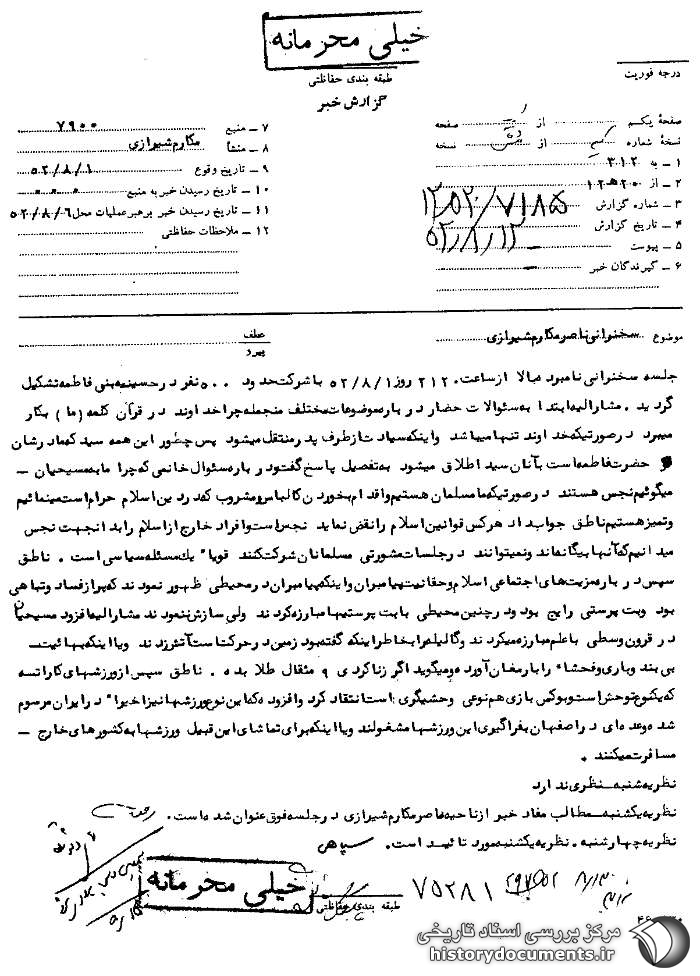 خیلی محرمانه
طبقه بندی حفاظتی
گزارش خبر
درجه فوریت
صفحهٔ یکم از صفحه
نسخهٔ شماره از نسخه
۱ ــ به ۳۱۲
۲ ــ از ۲۰ ه ۱۲
۳ ــ شماره گزارش ۱۲۵۲/۷۱۸۵
۴ ــ تاریخ گزارش ۵۲/۸/۱۲
۵ ــ پیوست ــ
۶ ــ گیرندگان خبر ــ
۷ ــ منبع ۷۹۰۰
۸ ــ منشأ مکارم شیرازی
۹ ــ تاریخ وقوع ۵۲/۸/۱
۱۰ ــ تاریخ رسیدن خبر به منبع ۰ ۰ ۰
۱۱ ــ تاریخ رسیدن خبر برهبر عملیات محل ۵۲/۸/۶
۱۲ ــ ملاحظات حفاظتی
موضوع سخنرانی ناصر مکارم شیرازی
عطف
پیرو
جلسه سخنرانی نامبرده بالا از ساعت ۲۱۲۰ روز ۵۲/۸/۱ با شرکت حدود ۵۰۰ نفر در حسینیه بنی فاطمه تشکیل
گردید . مشارالیه ابتدا به سئوالات حضار درباره موضوعات مختلف منجمله چرا خداوند در قرآن کلمه (ما) بکار
میبرد در صورتیکه خداوند تنها میباشد و اینکه سیادت از طرف پدر منتقل میشود پس چطور این همه سید که مادرشان
حضرت فاطمه است بآنان سید اطلاق میشود به تفصیل پاسخ گفت و درباره سئوال خانمی که چرا ما به مسیحیان ــ
میگوئیم نجس هستند در صورتیکه ما مسلمان هستیم و اقدام بخوردن کالباس و مشروب که در دین اسلام حرام است مینمائیم
و تمیز هستیم ناطق جواب داد هر کس قوانین اسلام را نقض نماید نجس است و افراد خارج از اسلام را بدانجهت نجس
میدانیم که آنها بیگانه اند و نمیتوانند در جلسات مشورتی مسلمانان شرکت کنند قویا" یک مسئله سیاسی است . ناطق
سپس درباره مزیت های اجتماعی اسلام و حقانیت پیامبران و اینکه پیامبران در محیطی ظهور نمودند که پر از فساد و تباهی
بود و بت پرستی رایج بود و در چنین محیطی با بت پرستیها مبارزه کردند ولی سازش ننمودند مشارالیه افزود مسیحیان
در قرون وسطی با علم مبارزه میکردند و گالیله را بخاطر اینکه گفته بود زمین در حرکت است آتش زدند و یا اینکه بهائیت ــ
بی بند و باری و فحشاء را بارمغان آورده و میگوید اگر زنا کردی ۹ مثقال طلا بده . ناطق سپس از ورزشهای کاراته
که یکنوع توحش است و بوکس بازی هم نوعی وحشیگری است انتقاد کرد و افزوده که این نوع ورزشها نیز اخیرا" در ایران مرسوم
شده و عده ای در اصفهان بفراگیری این ورزشها مشغولند و یا اینکه برای تماشای این قبیل ورزشها به کشورهای خارج ــ
مسافرت میکنند .
نظریه شنبه ــ نظری ندارد
نظریه یکشنبه ــ مطالب مفاد خبر از ناحیه ناصر مکارم شیرازی در جلسه فوق عنوان شده است .
نظریه چهارشنبه . نظریه یکشنبه مورد تائید است . سپاهی
خیلی محرمانه
طبقه بندی حفاظتی
۷۵۲۸۱
مرکز بررسی اسناد تاریخی
historydocuments.ir